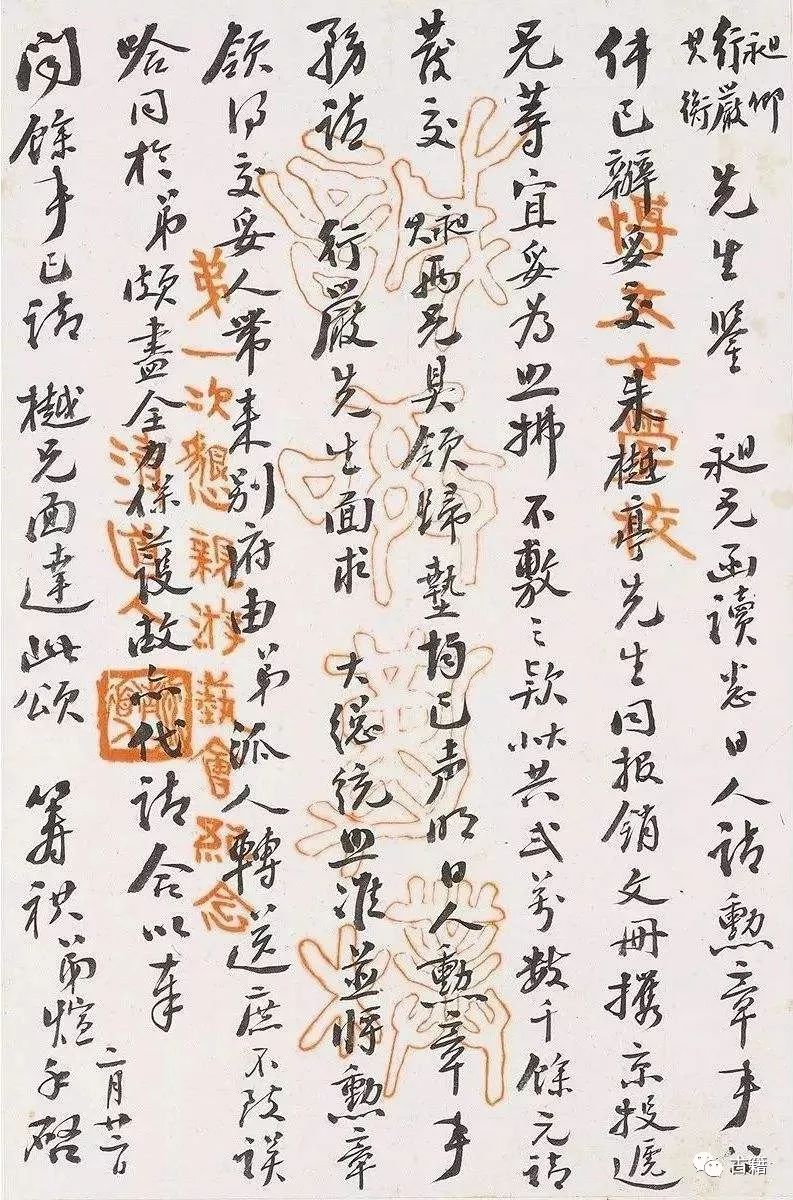 昶仰
行嚴
其衡
先生鑒 昶兄函讀悉日人請勳章事公
件已辦妥交朱樾亭先生同报銷文冊攜京投遞
兄等宜妥為照拂不敷之款共弍萬数千餘元請
發交 昶其两兄具領歸墊均已声明日人勳章事
務請 行嚴先生面求 大總統照准並將勳章
領得交妥人帶来别府由弟派人轉送庶不致误
哈同於弟頗盡全力保護故亦代請合以奉
聞餘事已請樾兄面達此頌 籌祺弟煊手啓
二月廿二日
博文女學校
弟一次懇親游藝會紀念
清道人
古籍